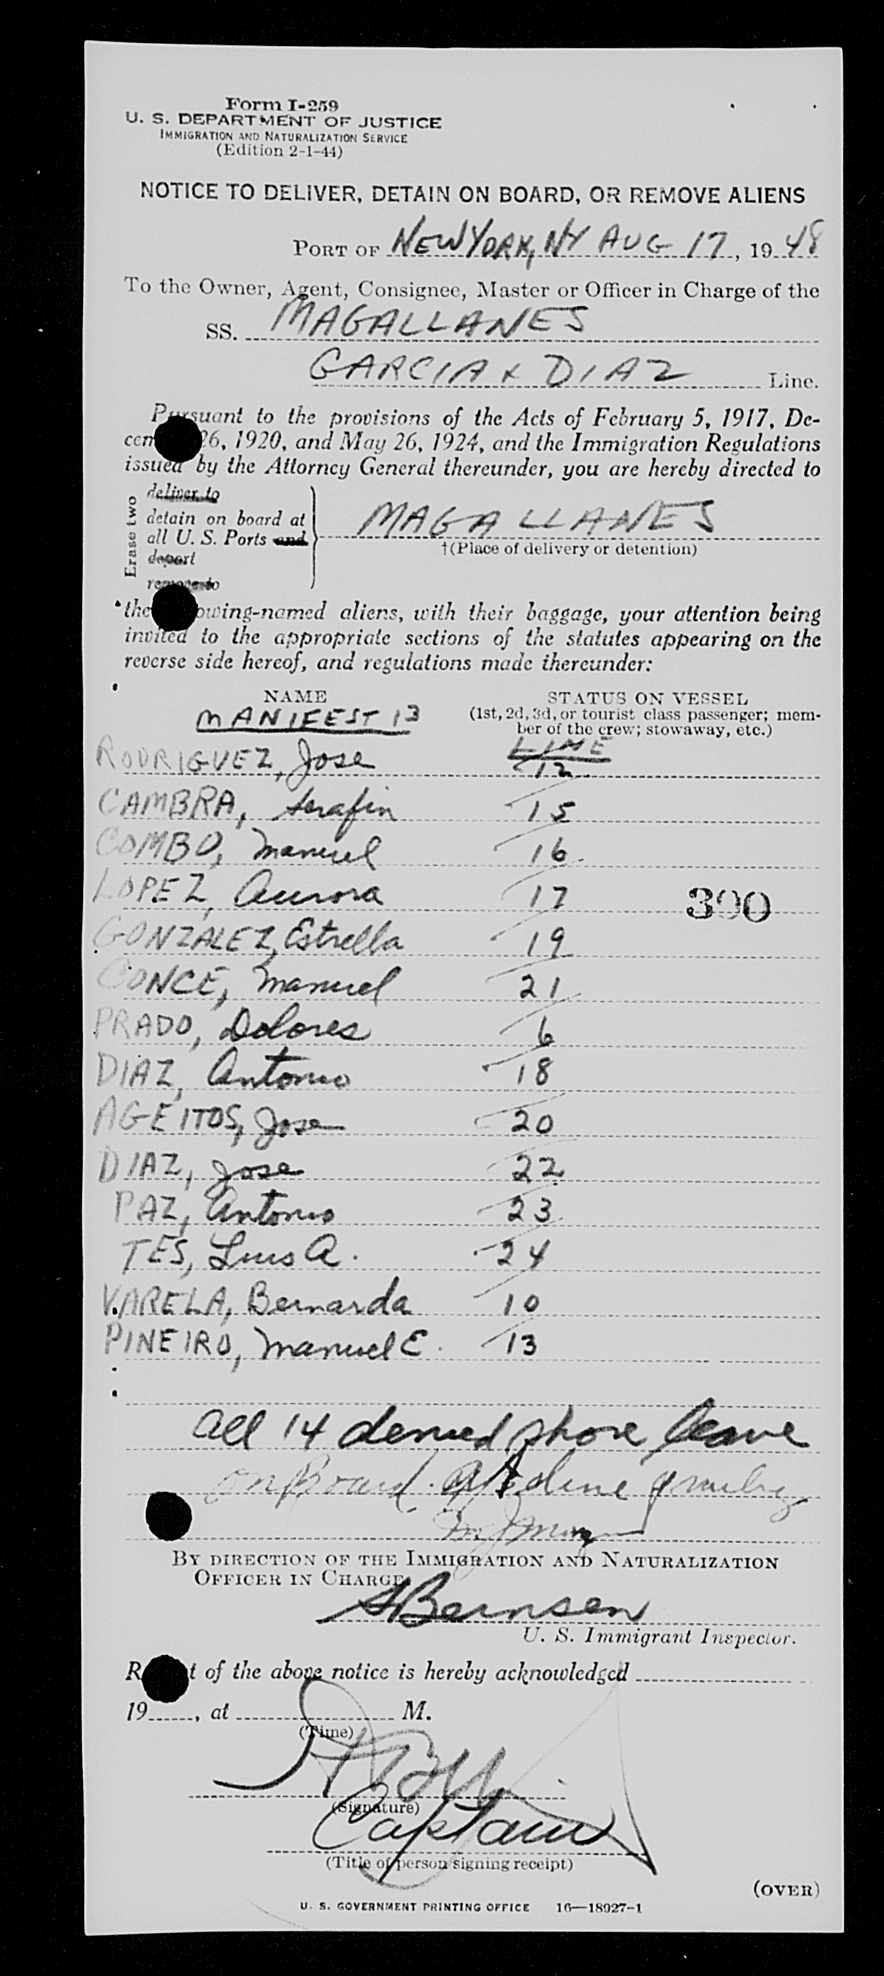 Form I-259
U. S. DEPARTMENT OF JUSTICE
IMMIGRATION AND NATURALIZATION SERVICE
(Edition 2-1-44)
NOTICE TO DELIVER, DETAIN ON BOARD, OR REMOVE ALIENS
PORT OF NEW YORK, NY AUG 17, 1948
To the Owner, Agent, Consignee, Master or Officer in Charge of the
SS. MAGALLANES
GARCIA & DIAZ Line.
Pursuant to the provisions of the Acts of February 5, 1917, De-
cem 26, 1920, and May 26, 1924, and the Immigration Regulations
issued by the Attorney General thereunder, you are hereby directed to
Erase two
deliver to
detain on board at
all U. S. Ports and
deport
remove to
MAGALLANES
†(Place of delivery or detention)
the owing-named aliens, with their baggage, your attention being
invited to the appropriate sections of the statutes appearing on the
reverse side hereof, and regulations made thereunder:
NAME STATUS ON VESSEL
(1st, 2d, 3d, or tourist class passenger; mem-
ber of the crew; stowaway, etc.)
MANIFEST 13 LINE
RODRIGUEZ, Jose 12
CAMBRA, Serafin 15
COMBO, Manuel 16
LOPEZ, Aurora 17 300
GONZALEZ, Estrella 19
CONCE, Manuel 21
PRADO, Dolores 6
DIAZ, Antonio 18
AGEITOS, Jose 20
DIAZ, Jose 22
PAZ, Antonio 23
TES, Luis A. 24
VARELA, Bernarda 10
PINEIRO, Manuel E. 13
All 14 denied shore leave
on Board.
BY DIRECTION OF THE IMMIGRATION AND NATURALIZATION
OFFICER IN CHARGE
S Bernsen
U. S. Immigrant Inspector.
R t of the above notice is hereby acknowledged
19 , at M.
(Time)
(Signature)
Captain
(Title of person signing receipt)
(OVER)
U. S. GOVERNMENT PRINTING OFFICE 16—18927-1